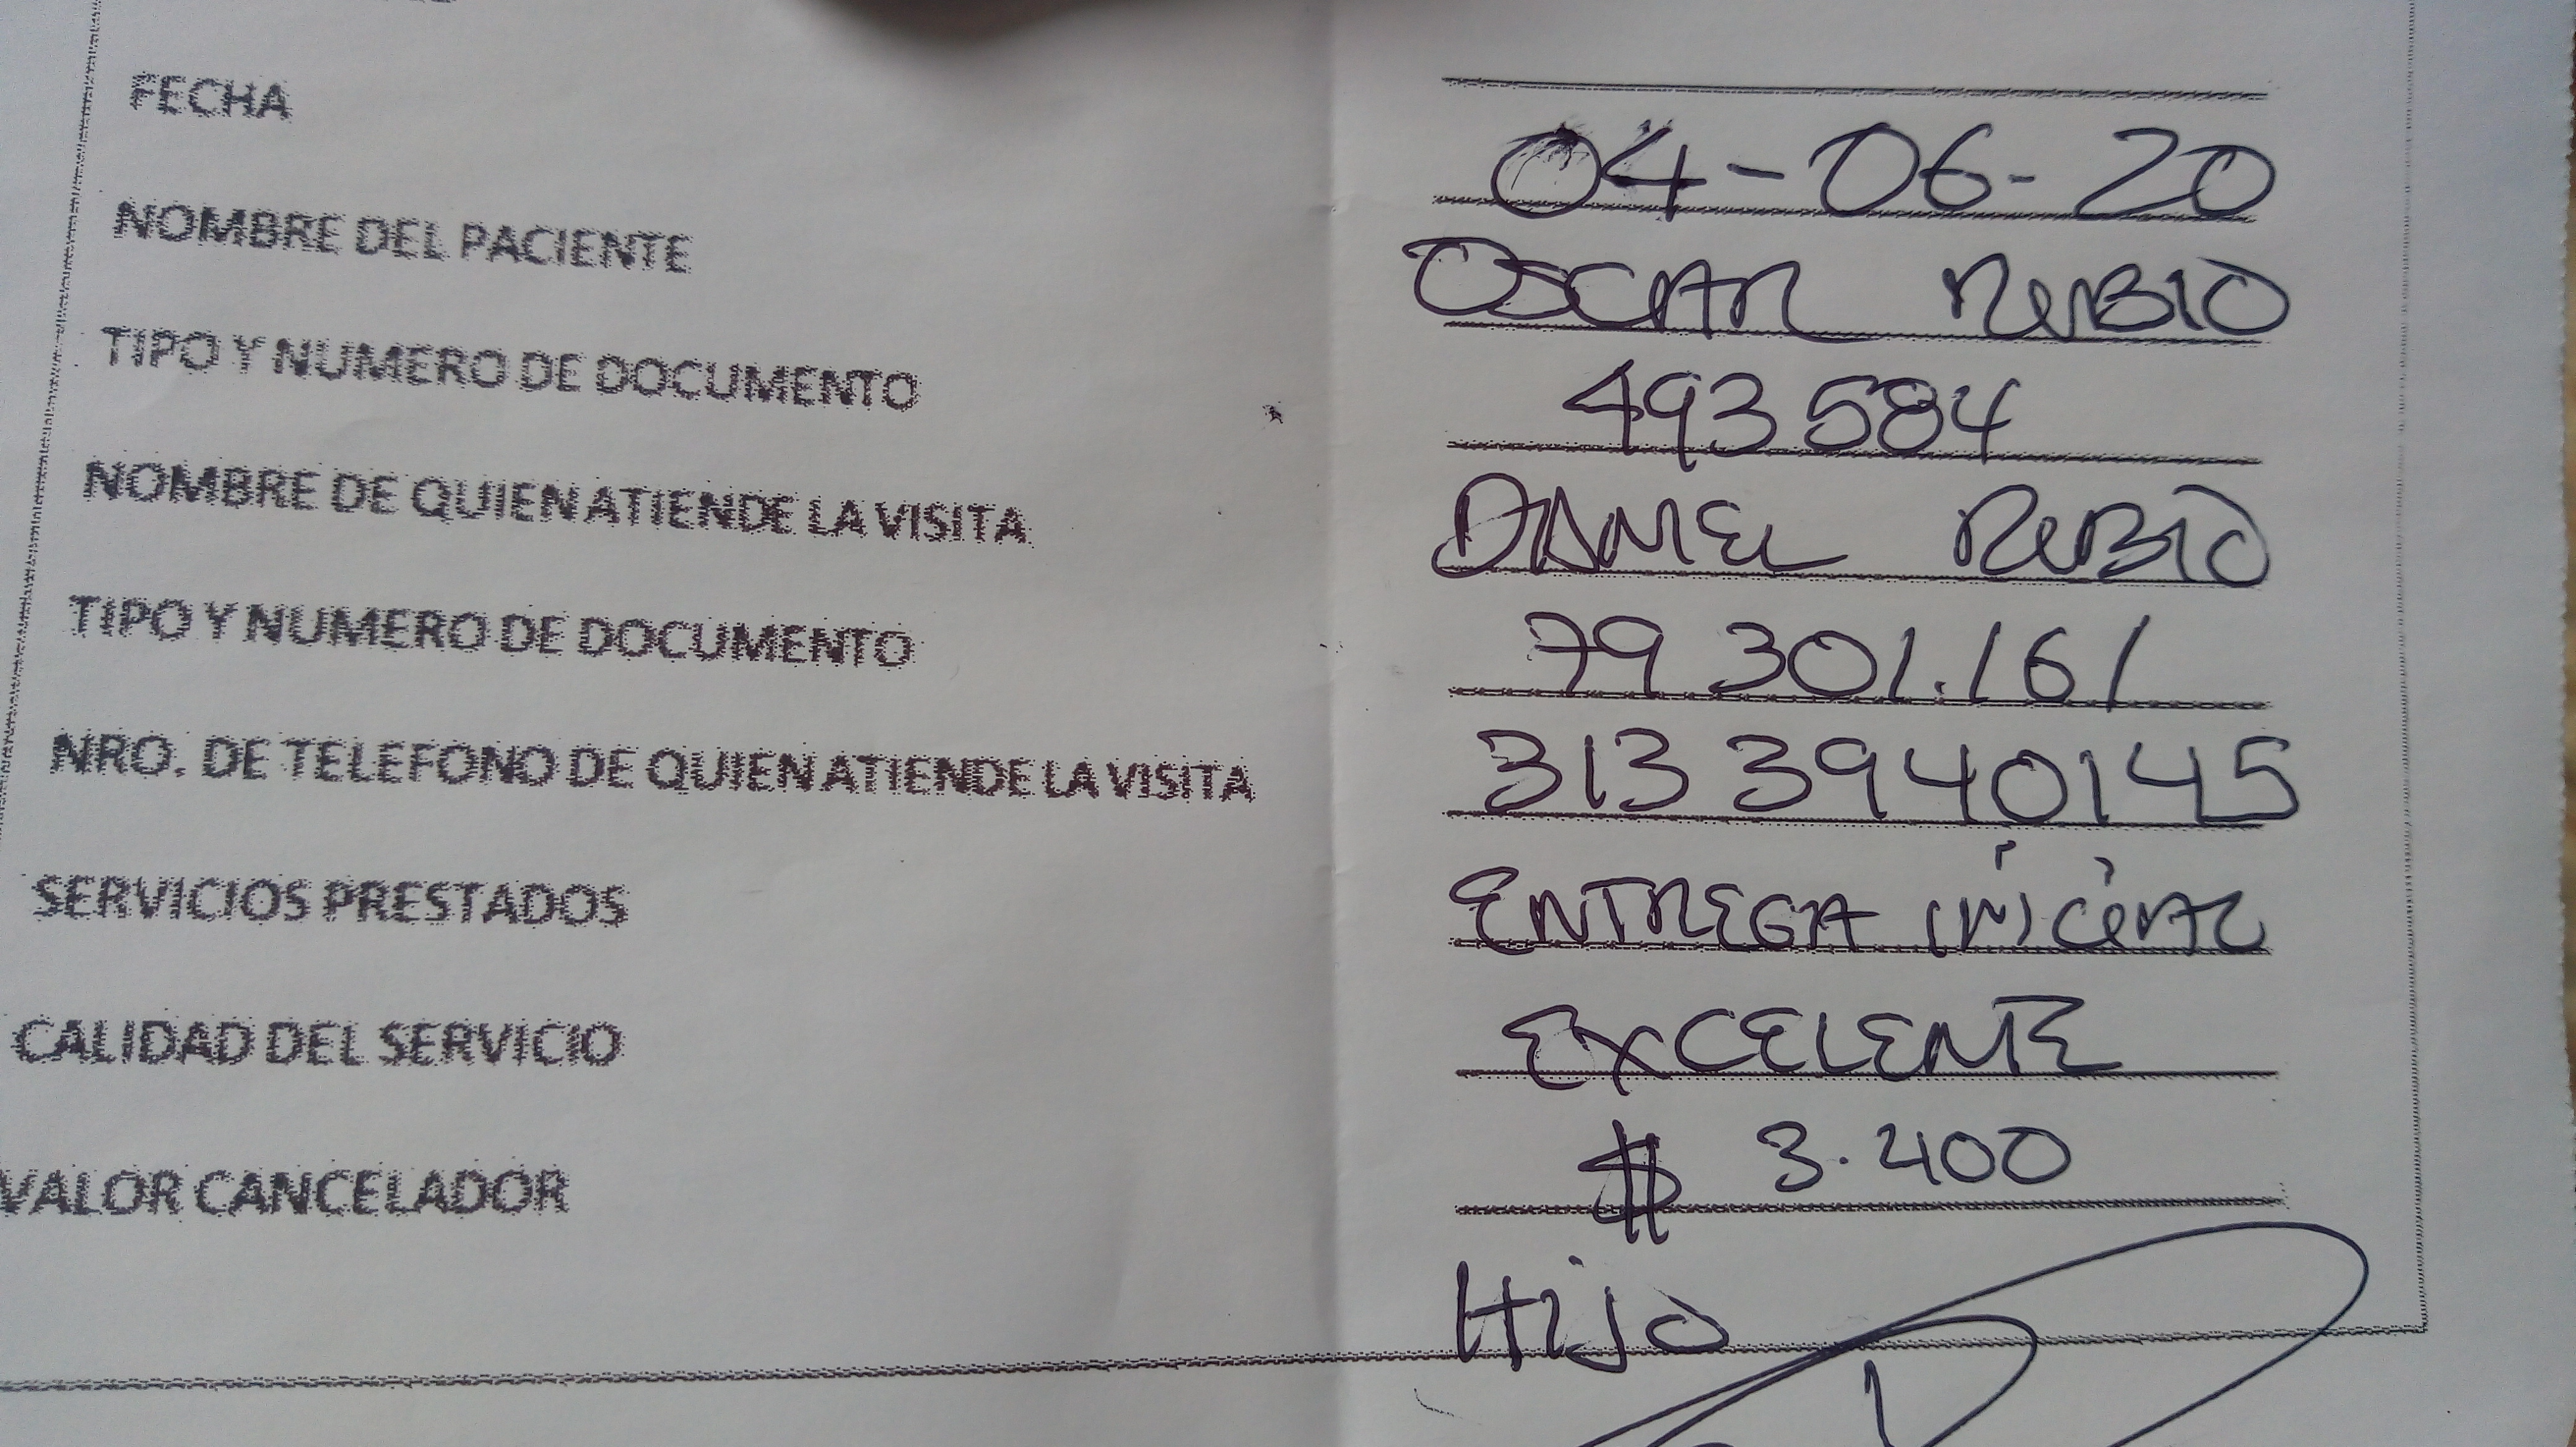 FECHA 04-06-20
NOMBRE DEL PACIENTE OSCAR RUBIO
TIPO Y NUMERO DE DOCUMENTO 493584
NOMBRE DE QUIEN ATIENDE LA VISITA DANIEL RUBIO
TIPO Y NUMERO DE DOCUMENTO 79 301.161
NRO. DE TELEFONO DE QUIEN ATIENDE LA VISITA 313 3940145
SERVICIOS PRESTADOS ENTREGA iNiCiAL
CALIDAD DEL SERVICIO EXCELENTE
VALOR CANCELADOR $ 3.400
Hijo